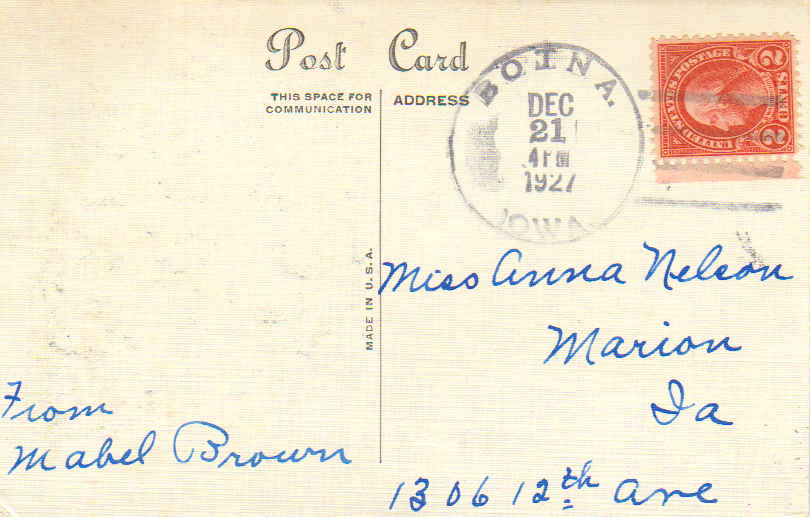 Post Card
THIS SPACE FOR
COMMUNICATION
ADDRESS
BOTNA.
DEC
21
4 PM
1927
IOWA
UNITED STATES POSTAGE
2 2
MADE IN U.S.A.
Miss Anna Nelson
Marion
Ia
1306 12th Ave
From
Mabel Brown